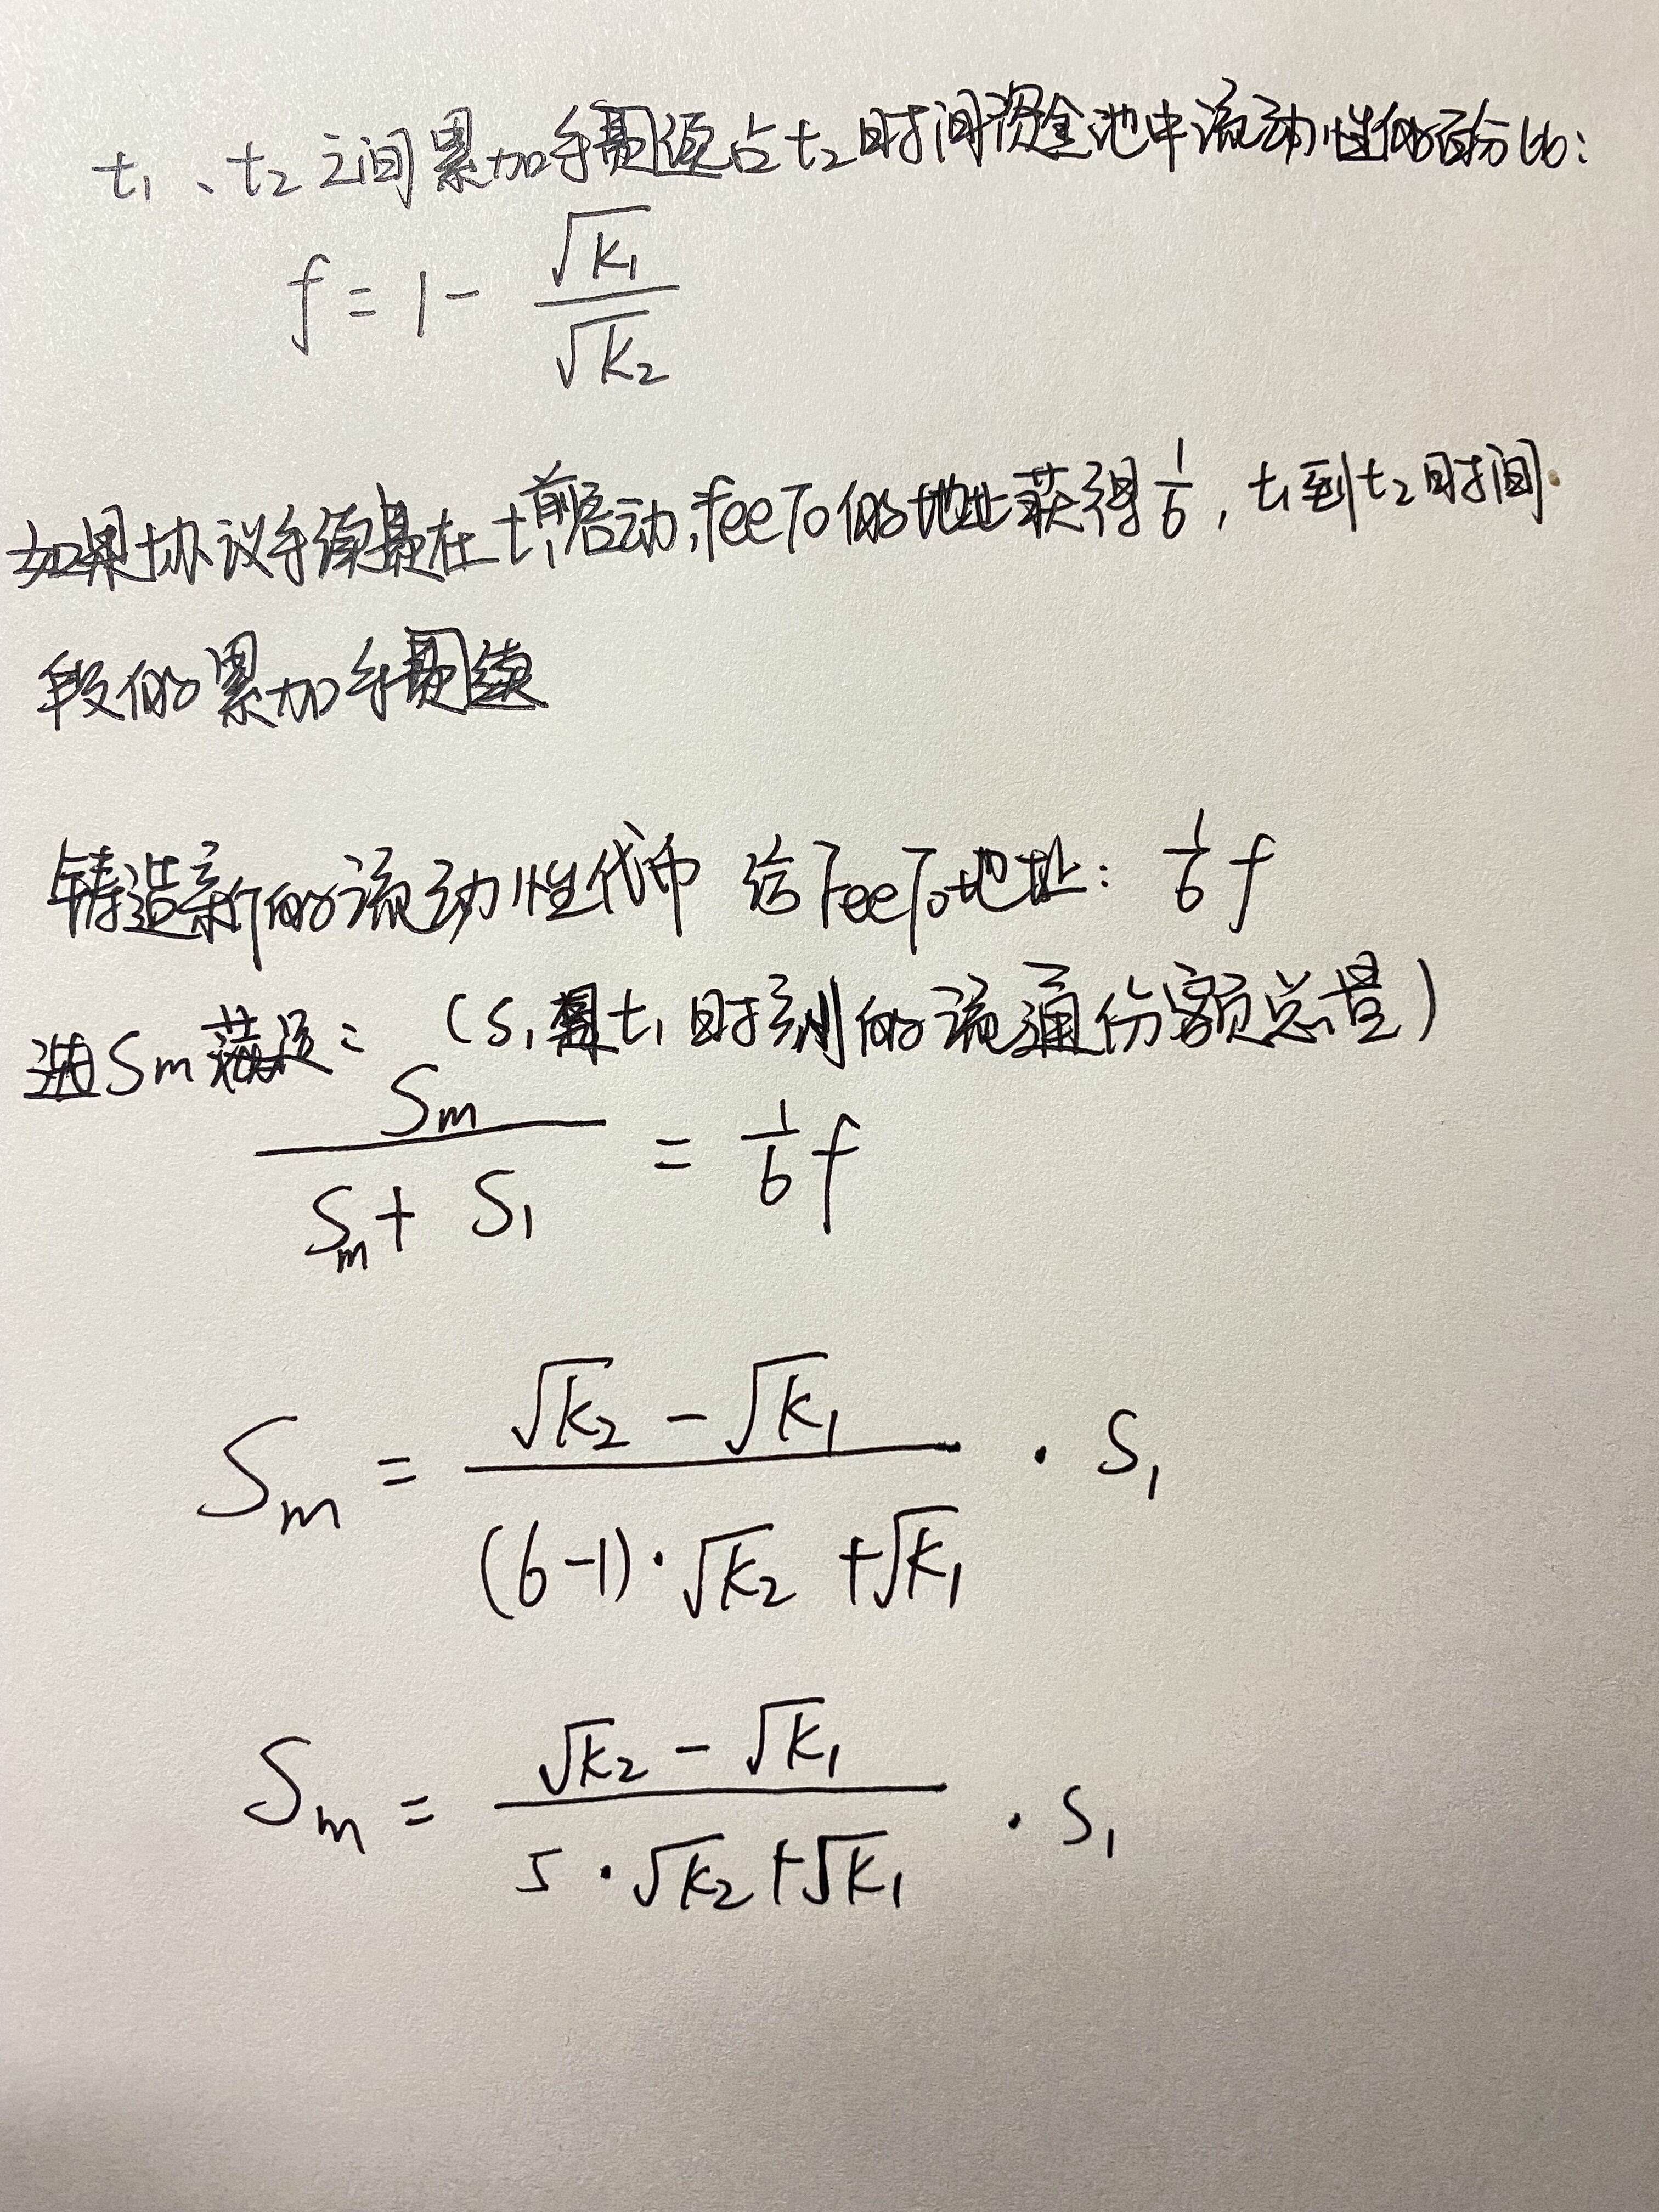 t₁、t₂ 之间累加手续费占t₂时间资金池中流动性的百分比：
f = 1 - √k₁ / √k₂
如果协议手续费在t₁前启动，feeTo的地址获得1/6，t₁到t₂时间
段的累加手续费
铸造新的流动性代币 给FeeTo地址： 1/6 f
选Sm满足： （S₁是t₁时刻的流通份额总量）
Sm / (Sm + S₁) = 1/6 f
Sm = (√k₂ - √k₁) / ((6-1)·√k₂ + √k₁) · S₁
Sm = (√k₂ - √k₁) / (5·√k₂ + √k₁) · S₁